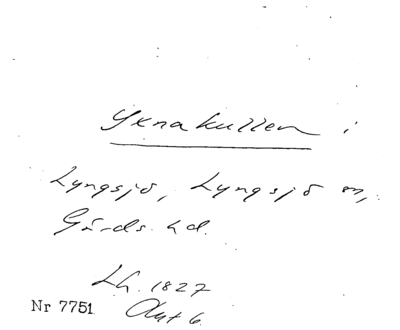 Yxnakullen i
Lyngsjö, Lyngsjö sn,
Gärds hd.
Lh. 1827
Akt 6.
Nr 7751